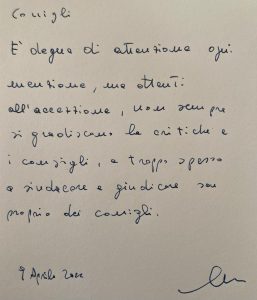 Consigli
È degna di attenzione ogni
menzione, ma attenti
all'accezione, non sempre
si gradiscono le critiche e
i consigli, e troppo spesso
a sindacare e giudicare son
proprio dei conigli.
9 Aprile